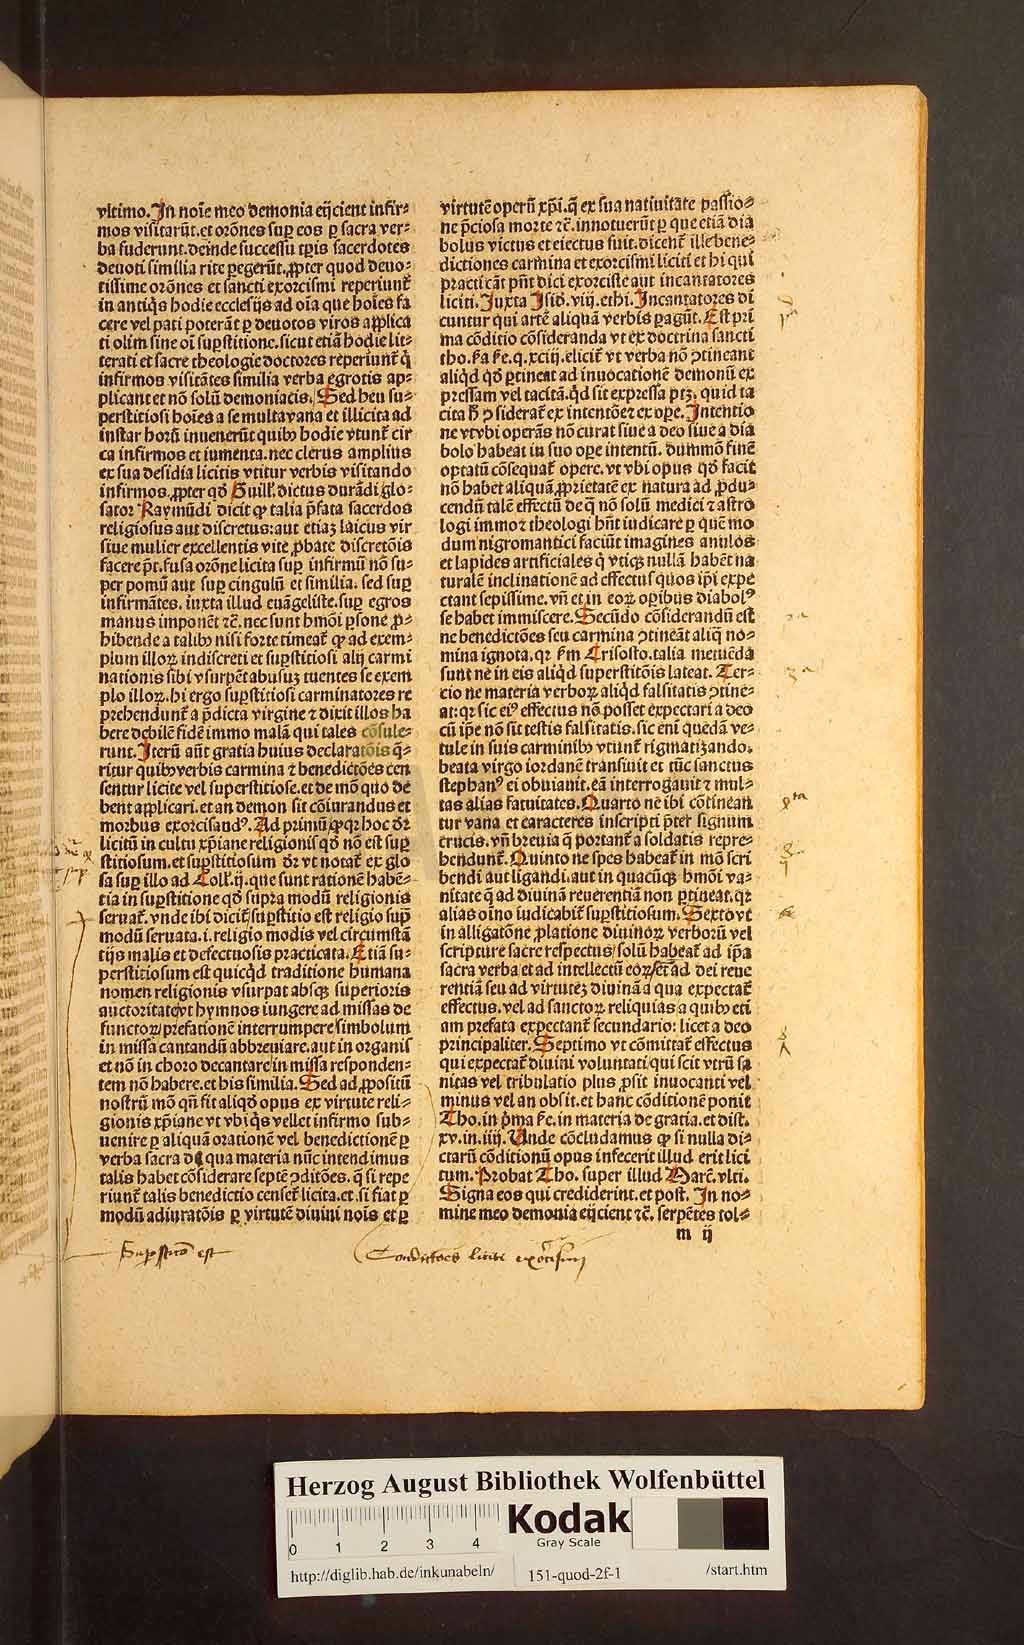 vltimo. In noīe meo demonia eijcient infir⸗
mos visitarūt. et orōnes sup eos p sacra ver⸗
ba fuderunt. deinde successu tpis sacerdotes
deuoti similia rite pegerūt. ppter quod deuo⸗
tissime orōnes et sancti exorcismi reperiunt᷑
in antiqs hodie ecclesijs ad oīa que hoīes fa
cere vel pati poterāt p deuotos viros applica
ti olim sine oī supstitione. sicut etiā hodie lit⸗
terati et sacre theologie doctores reperiunt᷑ q̇
infirmos visitātes similia verba egrotis ap⸗
plicant et nō solū demoniacis. Sed heu su⸗
perstitiosi hoīes a se multa vana et illicita ad
instar horū inuenerūt quibꝰ hodie vtunt᷑ cir
ca infirmos et iumenta. nec clerus amplius
ex sua desidia licitis vtitur verbis visitando
infirmos. ppter qd̄ Guill᷑. dictus durādi glo⸗
sator Raymūdi dicit ꝙ talia p̄fata sacerdos
religiosus aut discretus: aut etiaꝫ laicus vir
siue mulier excellentis vite pbate discretōis
facere pt̄. fusa orōne licita sup infirmū nō su⸗
per pomū aut sup cingulū et similia. sed sup
infirmātes. iuxta illud euāgeliste. sup egros
manus imponēt ⁊c̄. nec sunt hmōi psone p⸗
hibende a talibꝰ nisi forte timeat᷑ ꝙ ad exem⸗
plum illoꝝ indiscreti et supstitiosi alij carmi
nationis sibi vsurpēt abusuꝫ tuentes se exem
plo illoꝝ. hi ergo supstitiosi carminatores re
prehendunt᷑ a p̄dicta virgine ⁊ dixit illos ha
bere debilē fidē immo malā qui tales cōsule⸗
runt. Iterū aūt gratia huius declaratōis q̄⸗
ritur quibꝰ verbis carmina ⁊ benedictōes cen
sentur licite vel superstitiose. et de mō quo de
bent applicari. et an demon sit cōiurandus et
morbus exorcisandꝰ. Ad primū ꝙ qꝛ hoc dr̄
licitū in cultu xp̄iane religionis qd̄ nō est sup
stitiosum. et supstitiosum dr̄ vt notat᷑ ex glo
sa sup illo ad Coll᷑. ij. que sunt rationē habē⸗
tia in supstitione qd̄ supra modū religionis
seruat᷑. vnde ibi dicit᷑ supstitio est religio sup
modū seruata. i. religio modis vel circumstā
tijs malis et defectuosis practicata. Etiā su⸗
perstitiosum est quicq̇d traditione humana
nomen religionis vsurpat absqꝫ superioris
auctoritate vt hymnos iungere ad missas de
functoꝝ/prefationē interrumpere/simbolum
in missa cantandū abbreuiare. aut in organis
et nō in choro decantare in missa responden⸗
tem nō habere. et his similia. Sed ad ppositū
nostrū mō qn̄ fit aliqd̄ opus ex virtute reli⸗
gionis xp̄iane vt vbi q̇s vellet infirmo sub⸗
uenire p aliquā orationē vel benedictionē p
verba sacra de qua materia nūc intendimus
talis habet cōsiderare septē ꝯditōes. q̄ si repe
riunt᷑ talis benedictio censet᷑ licita. et si fiat p
modū adiuratōis p virtutē diuini noīs et p
Supstitio est
virtutē operū xp̄i. q̄ ex sua natiuitate passio⸗
ne p̄ciosa morte ⁊c̄. innotuerūt p que etiā dia
bolus victus et eiectus fuit. dicent᷑ ille bene⸗
dictiones carmina et exorcismi liciti et hi qui
practicāt pn̄t dici exorciste aut incantatores
liciti. Iuxta Isid. viij. ethi. Incantatores di
cuntur qui artē aliquā verbis pagūt. Est pri
ma cōditio cōsideranda vt ex doctrina sancti
tho. ẜa ẜe. q. xciij. elicit᷑ vt verba nō ꝯtineant
aliq̇d qd̄ ptineat ad inuocationē demonū ex
pressam vel tacitā. q̇d sit expressa ptꝫ. quid ta
cita h̄ ꝯsiderat᷑ ex intentōe ⁊ ex ope. Intentio
ne vt vbi operās nō curat siue a deo siue a dia
bolo habeat in suo ope intentū. dummō finē
optatū cōsequat᷑ opere. vt vbi opus qd̄ facit
nō habet aliquā pprietatē ex natura ad pdu⸗
cendū talē effectū de q̄ nō solū medici ⁊ astro
logi immo ⁊ theologi hn̄t iudicare p quē mo
dum nigromantici faciūt imagines anulos
et lapides artificiales q̇ vtiqꝫ nullā habēt na
turalē inclinationē ad effectus quos ip̄i expe
ctant sepissime. vn̄ et in eoꝝ opibus diabolꝰ
se habet immiscere. Secūdo cōsiderandū est
ne benedictōes seu carmina ꝯtineāt aliq̄ no⸗
mina ignota. qꝛ ẜm Crisosto. talia metuēda
sunt ne in eis aliq̇d superstitōis lateat. Ter⸗
cio ne materia verboꝝ aliq̇d falsitatis ꝯtine⸗
at: qꝛ sic eiꝰ effectus nō posset expectari a deo
cū ip̄e nō sit testis falsitatis. sic eni quedā ve⸗
tule in suis carminibꝰ vtunt᷑ rigmatizando.
beata virgo iordanē transiuit et tūc sanctus
stephanꝰ ei obuiauit. eā interrogauit ⁊ mul⸗
tas alias fatuitates. Quarto ne ibi cōtinean
tur vana et caracteres inscripti p̄ter signum
crucis. vn̄ breuia q̄ portant᷑ a soldatis repre⸗
hendunt᷑. Quinto ne spes habeat᷑ in mō scri
bendi aut ligandi. aut in quacūqꝫ hmōi va⸗
nitate q̄ ad diuinā reuerentiā non ptineat. qꝛ
alias oīno iudicabit᷑ supstitiosum. Sexto vt
in alligatōne platione diuinoꝝ verborū vel
scripture sacre respectus/solū habeat᷑ ad ip̄a
sacra verba et ad intellectū eoꝝ/et ad dei reue
rentiā seu ad virtuteꝫ diuinā a qua expectat᷑
effectus. vel ad sanctoꝝ reliquias a quibꝰ eti
am prefata expectant᷑ secundario: licet a deo
principaliter. Septimo vt cōmittat᷑ effectus
qui expectat᷑ diuini voluntati. qui scit vtrū sa
nitas vel tribulatio plus psit inuocanti vel
minus vel an obsit. et hanc cōditionē ponit
Tho. in p̄ma ẜe. in materia de gratia. et dist.
xv. in. iiij. Unde cōcludamus ꝙ si nulla di⸗
ctarū cōditionū opus infecerit illud erit lici
tum. Probat Tho. super illud Marc̄. vlti.
Signa eos qui crediderint. et post. In no⸗
mine meo demonia eijcient ⁊c̄. serpētes tol⸗
m ij
Condictões liciti exorcismi
Herzog August Bibliothek Wolfenbüttel
0 1 2 3 4
Kodak
Gray Scale
http://diglib.hab.de/inkunabeln/
151-quod-2f-1
/start.htm